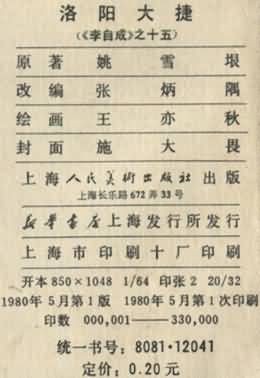 洛阳大捷
(《李自成》之十五)
原著姚雪垠
改编张炳隅
绘画王亦秋
封面施大畏
上海人民美术出版社出版
上海长乐路672弄33号
新华书店上海发行所发行
上海市印刷十厂印刷
开本850×1048 1/64 印张2 20/32
1980年5月第1版 1980年5月第1次印刷
印数 000,001——330,000
统一书号：8081·12041
定价：0.20元